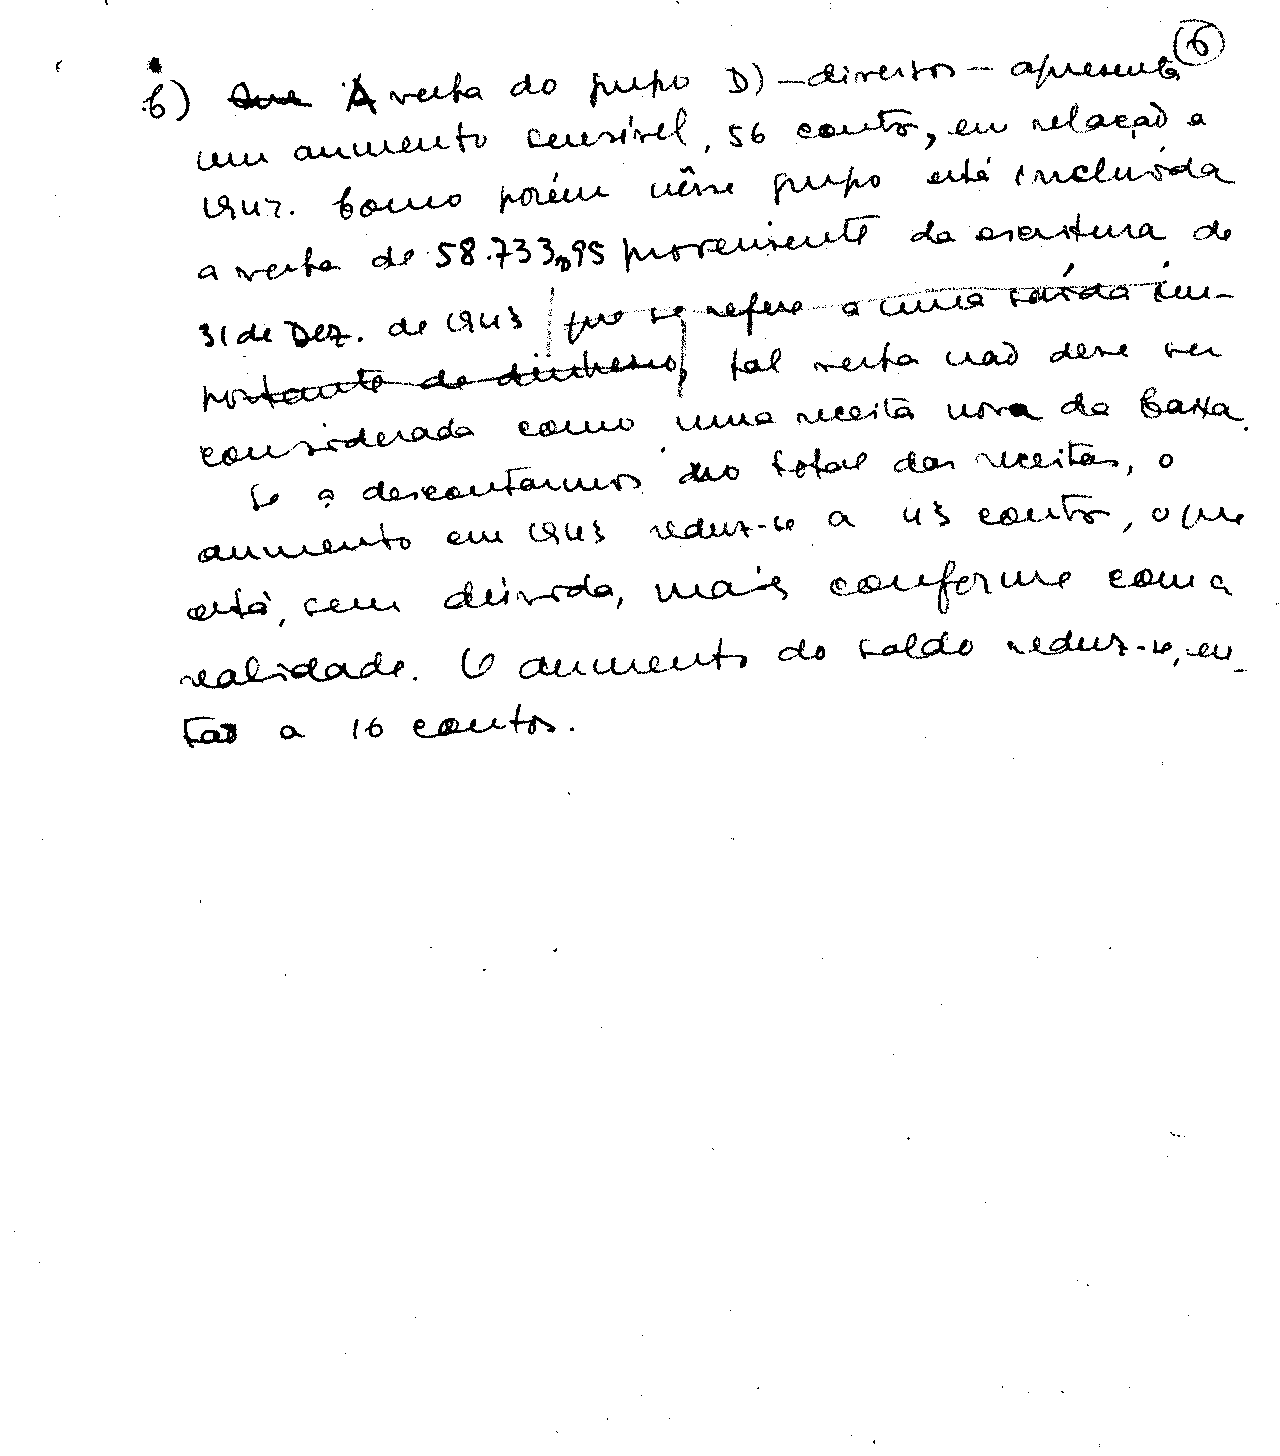 6
b) Que A verba do grupo D) - diversos - apresenta
um aumento sensível, 56 contos, em relação a
1942. Como porém nêsse grupo está incluída
a verba de 58.733$95 proveniente da escritura de
31 de Dez. de 1943 que se refere a uma saída im-
portante de dinheiro, tal verba não deve ser
considerada como uma receita nova da Caixa.
Se a descontarmos no total das receitas, o
aumento em 1943 reduz-se a 43 contos, o que
está, sem dúvida, mais conforme com a
realidade. O aumento do saldo reduz-se, en-
tão a 16 contos.